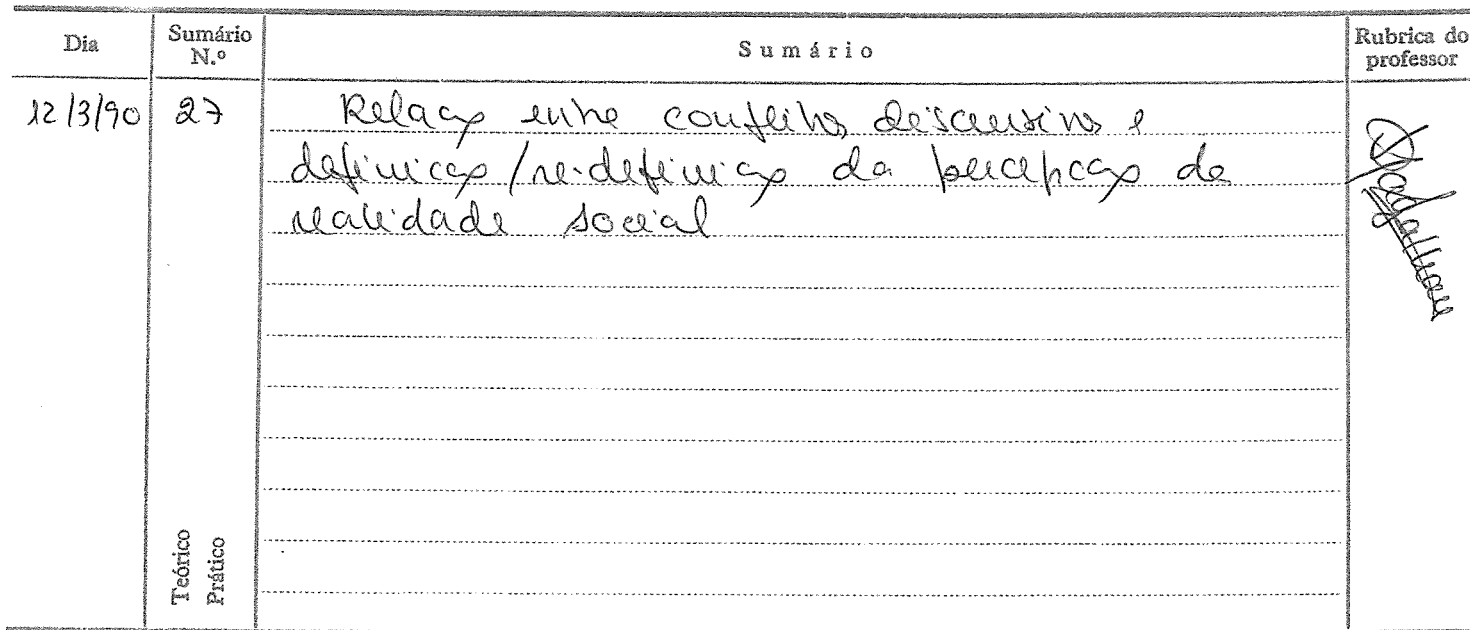 Dia
Sumário N.º
Sumário
Rubrica do professor
12/3/90
27
Relação entre conflitos discursivos e
definição/re-definição da percepção da
realidade social
Magalhães
Teórico
Prático